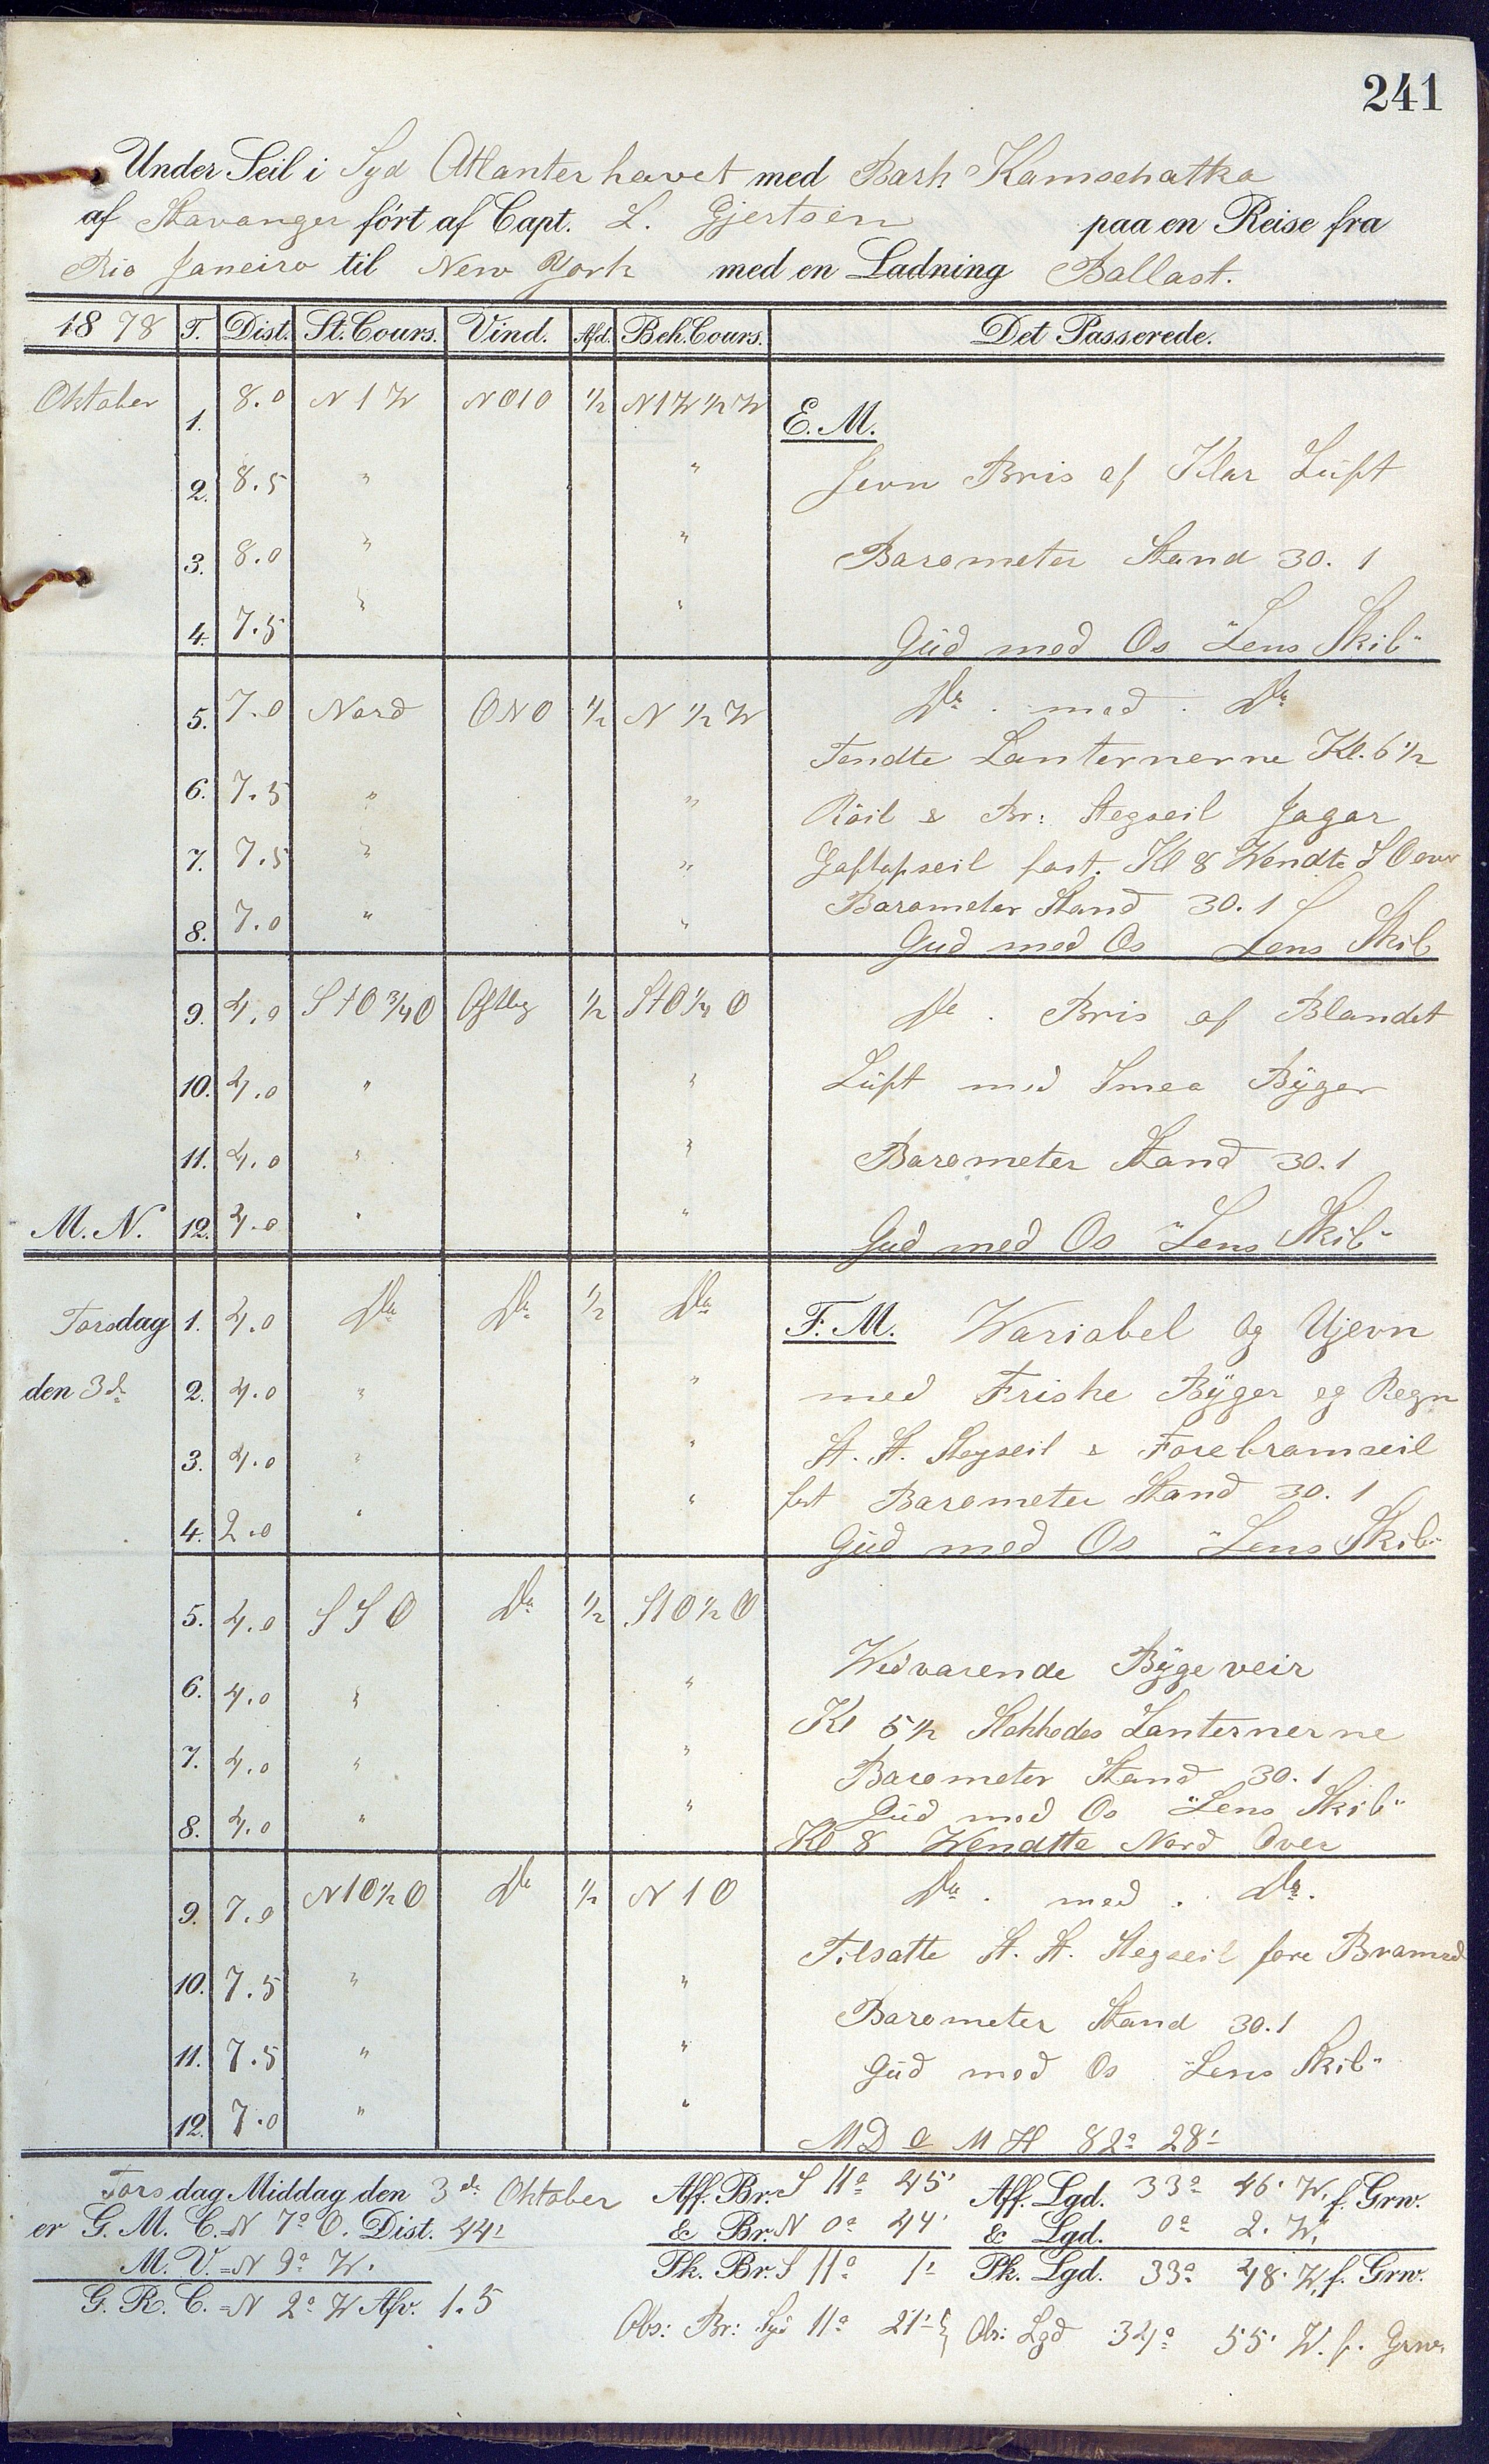 241
Under Seil i Syd Atlanterhavet med Bark Kamschatka
af Stavanger ført af Capt. L. Gjertsen paa en Reise fra
Rio Janeiro til New York med en Ladning Ballast.
1878 T. Dist. St. Cours. Vind. Afd. Beh. Cours. Det Passerede.
Oktober 1. 8.0 N 1 W NO1O ½ N1W½W E. M.
2. 8.5 " " Jevn Bris af Klar Luft
3. 8.0 " " Barometer Stand 30.1
4. 7.5 " " Gud med Os "Lens Skib"
5. 7.0 Nord ONO ½ N ½ W Do. med. Do
Tendte Lanternerne Kl. 6½
6. 7.5 " " Röil & Br: Stegseil Jagar
7. 7.5 " " Gaftopseil fast. Kl 8 Wendte S Over
8. 7.0 " " Barometer Stand 30.1
Gud med Os Lens Skib
9. 4.0 StO¾O Ostlig ½ StO¼O Do. Bris af Blandet
10. 4.0 " " Luft med Smaa Byger
11. 4.0 " " Barometer Stand 30.1
M. N. 12. 4.0 " " Gud med Os "Lens Skib"
Torsdag 1. 4.0 Do Do ½ Do F. M. Wariabel og Ujevn
den 3de 2. 4.0 " " med Friske Byger og Regn
3. 4.0 " " St. St. Stegseil & Forebramseil
4. 2.0 " " fast Barometer Stand 30.1
Gud med Os "Lens Skib"
5. 4.0 SSO Do ½ StO½O
6. 4.0 " " Wedvarende Bygeveir
Kl 5½ Slukkedes Lanternerne
7. 4.0 " " Barometer Stand 30.1
8. 4.0 " " Gud med Os "Lens Skib"
Kl 8 Wendtte Nord Over
9. 7.0 N1O½O Do ½ N 1 O Do. med. Do.
10. 7.5 " " Tilsatte St. St. Stegseil fore Bramsed
11. 7.5 " " Barometer Stand 30.1
Gud med Os "Lens Skib"
12. 7.0 " " M D a M H 82° 28'
Torsdag Middag den 3de Oktober Aff. Br. S 11° 45' Aff. Lgd. 33° 46' W. f. Grw.
er G. M. C. = N 7° O. Dist. 44' & Br. N 0° 44' & Lgd. 0° 2' W.
M. V. = N 9° W. Pk. Br. S 11° 1' Pk. Lgd. 33° 48' W. f. Grw.
G. R. C. = N 2° W Afv. 1.5
Obs: Br: Syd 11° 21' Obs: Lgd 34° 55' W. f. Grw.